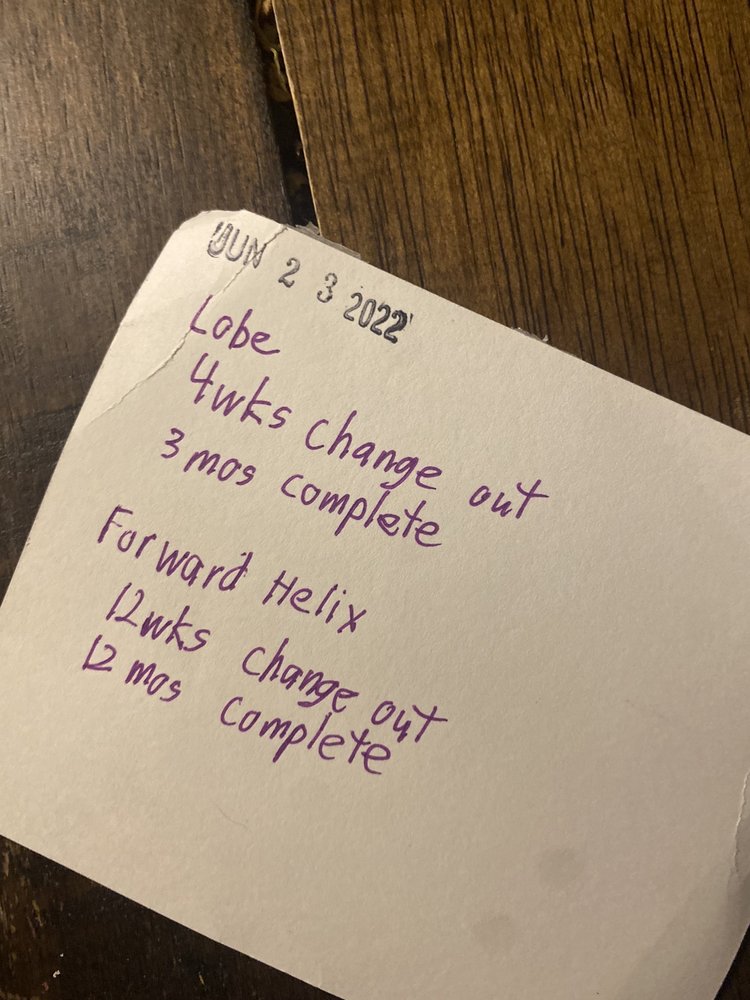 JUN 23 2022
Lobe
4wks change out
3 mos complete
Forward Helix
12wks change out
12 mos complete